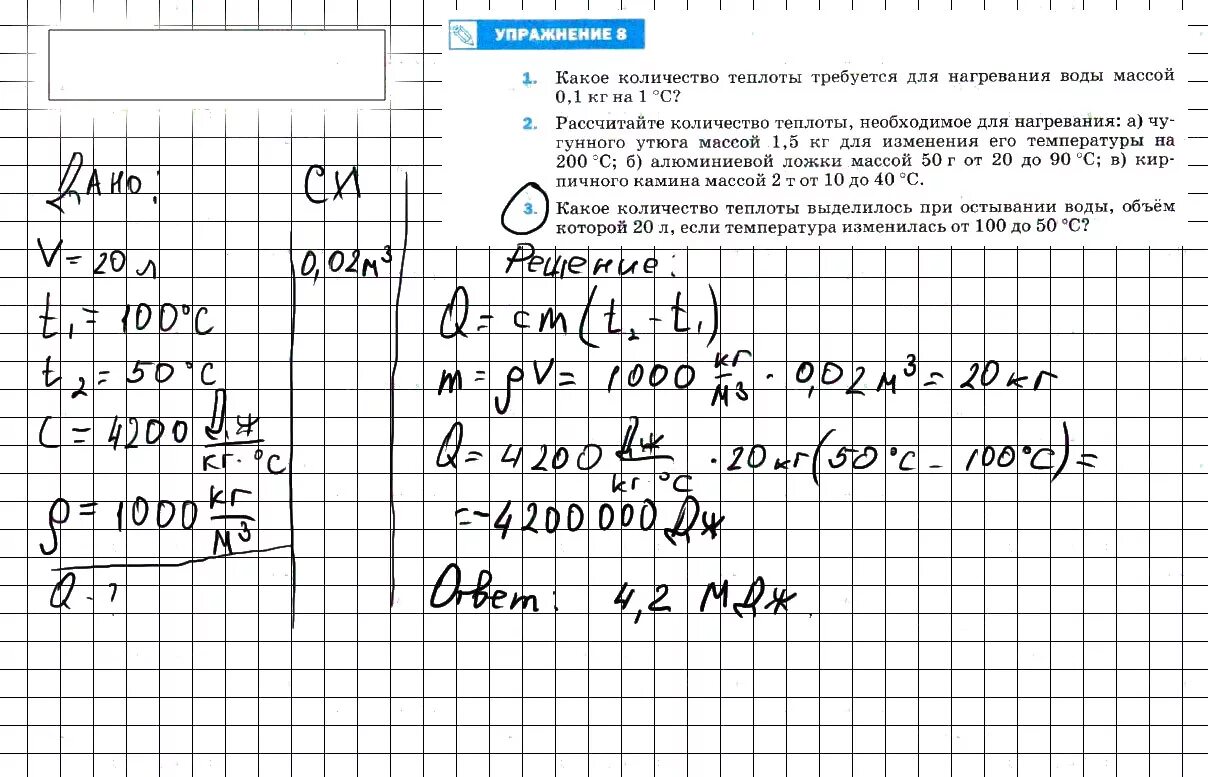 УПРАЖНЕНИЕ 8
1. Какое количество теплоты требуется для нагревания воды массой
0,1 кг на 1 °С?
2. Рассчитайте количество теплоты, необходимое для нагревания: а) чу-
гунного утюга массой 1,5 кг для изменения его температуры на
200 °С; б) алюминиевой ложки массой 50 г от 20 до 90 °С; в) кир-
пичного камина массой 2 т от 10 до 40 °С.
3. Какое количество теплоты выделилось при остывании воды, объём
которой 20 л, если температура изменилась от 100 до 50 °С?
Дано: СИ
V = 20 л 0,02 м³
t₁ = 100°С
t₂ = 50°С
c = 4200 Дж/кг·°С
ρ = 1000 кг/м³
Q - ?
Решение:
Q = cm(t₂ - t₁)
m = ρV = 1000 кг/м³ · 0,02 м³ = 20 кг
Q = 4200 Дж/кг·°С · 20 кг (50°С - 100°С) =
= -4200 000 Дж
Ответ: 4,2 МДж.